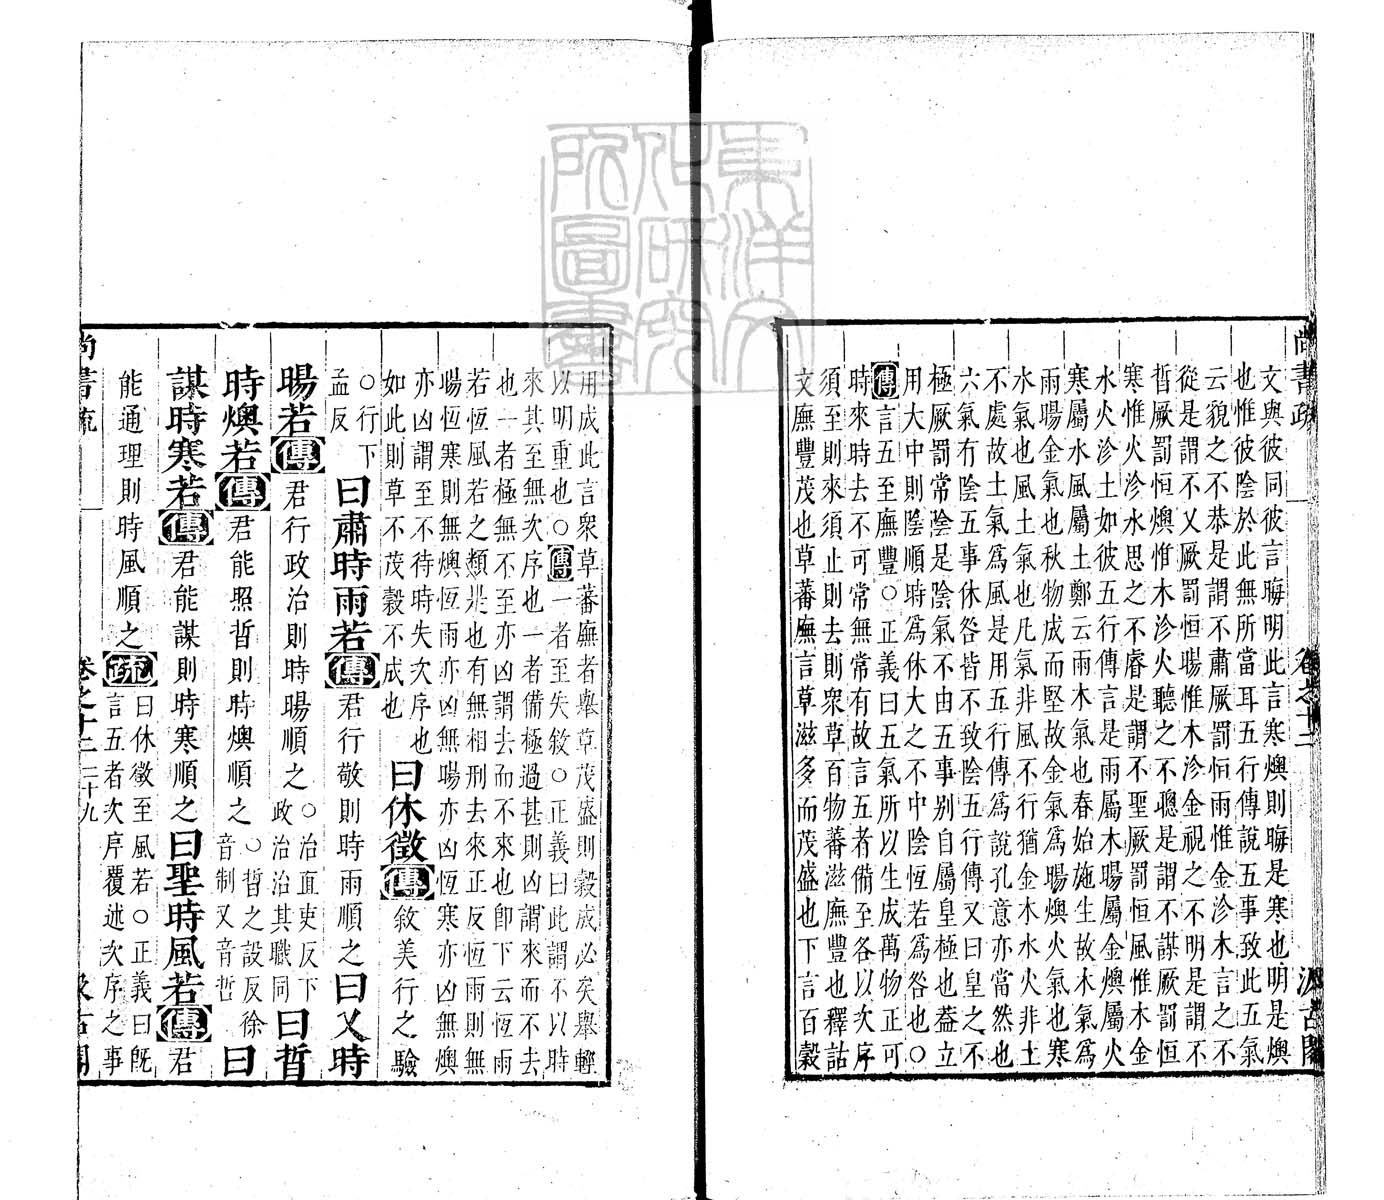 尚書疏 卷之十二 汲古閣
文與彼同彼言晦明此言寒燠則晦是寒也明是燠
也惟彼陰於此無所當耳五行傳說五事致此五氣
云貌之不恭是謂不肅厥罰恒雨惟金沴木言之不
從是謂不乂厥罰恒暘惟木沴金視之不明是謂不
哲厥罰恒燠惟木沴火聽之不聰是謂不謀厥罰恒
寒惟火沴水思之不睿是謂不聖厥罰恒風惟木金
水火沴土如彼五行傳言是雨屬木暘屬金燠屬火
寒屬水風屬土鄭云雨木氣也春始施生故木氣爲
雨暘金氣也秋物成而堅故金氣爲暘燠火氣也寒
水氣也風土氣也凡氣非風不行猶金木水火非土
不處故土氣爲風是用五行傳爲說孔意亦當然也
六氣有陰五事休咎皆不致陰五行傳又曰皇之不
極厥罰常陰是陰氣不由五事別自屬皇極也蓋立
用大中則陰順時爲休大之不中陰恆若爲咎也○
傳言五至廡豐○正義曰五氣所以生成萬物正可
時來時去不可常無常有故言五者備至各以次序
須至則來須止則去則衆草百物蕃滋廡豐也釋詁
文廡豐茂也草蕃廡言草滋多而茂盛也下言百穀
用成此言衆草蕃廡者舉草茂盛則穀成必矣舉輕
以明重也○傳一者至失敘○正義曰此謂不以時
來其至無次序也一者備極過甚則凶謂來而不去
也一者極無不至亦凶謂去而不來也卽下云恆雨
若恆風若之類是也有無相刑去來正反恆雨則無
暘恆寒則無燠恆雨亦凶無暘亦凶恆寒亦凶無燠
亦凶謂至不待時失次序也
如此則草不茂穀不成也
曰休徵傳敘美行之驗
○行下
孟反
曰肅時雨若傳君行敬則時雨順之曰乂時
暘若傳君行政治則時暘順之
○治直吏反下
政治治其職同
曰晢
時燠若傳君能照晢則時燠順之
○晢之設反徐
音制又音哲
曰
謀時寒若傳君能謀則時寒順之曰聖時風若傳君
能通理則時風順之
疏
曰休徵至風若○正義曰旣
言五者次序覆述次序之事
尚書疏 卷之十二 二十九 汲古閣